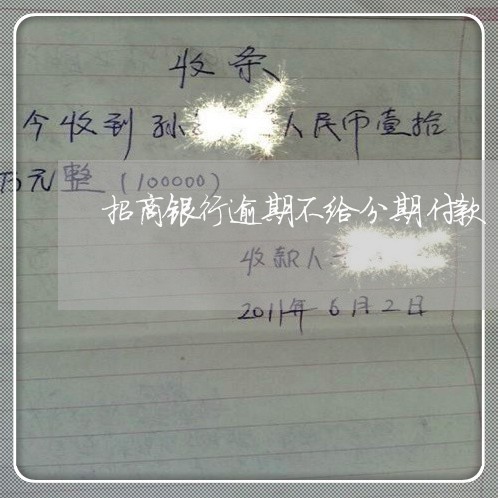 收条
今收到孙 人民币壹拾
万元整(100000)
招商银行逾期不给分期付款
收款人
2011年6月2日